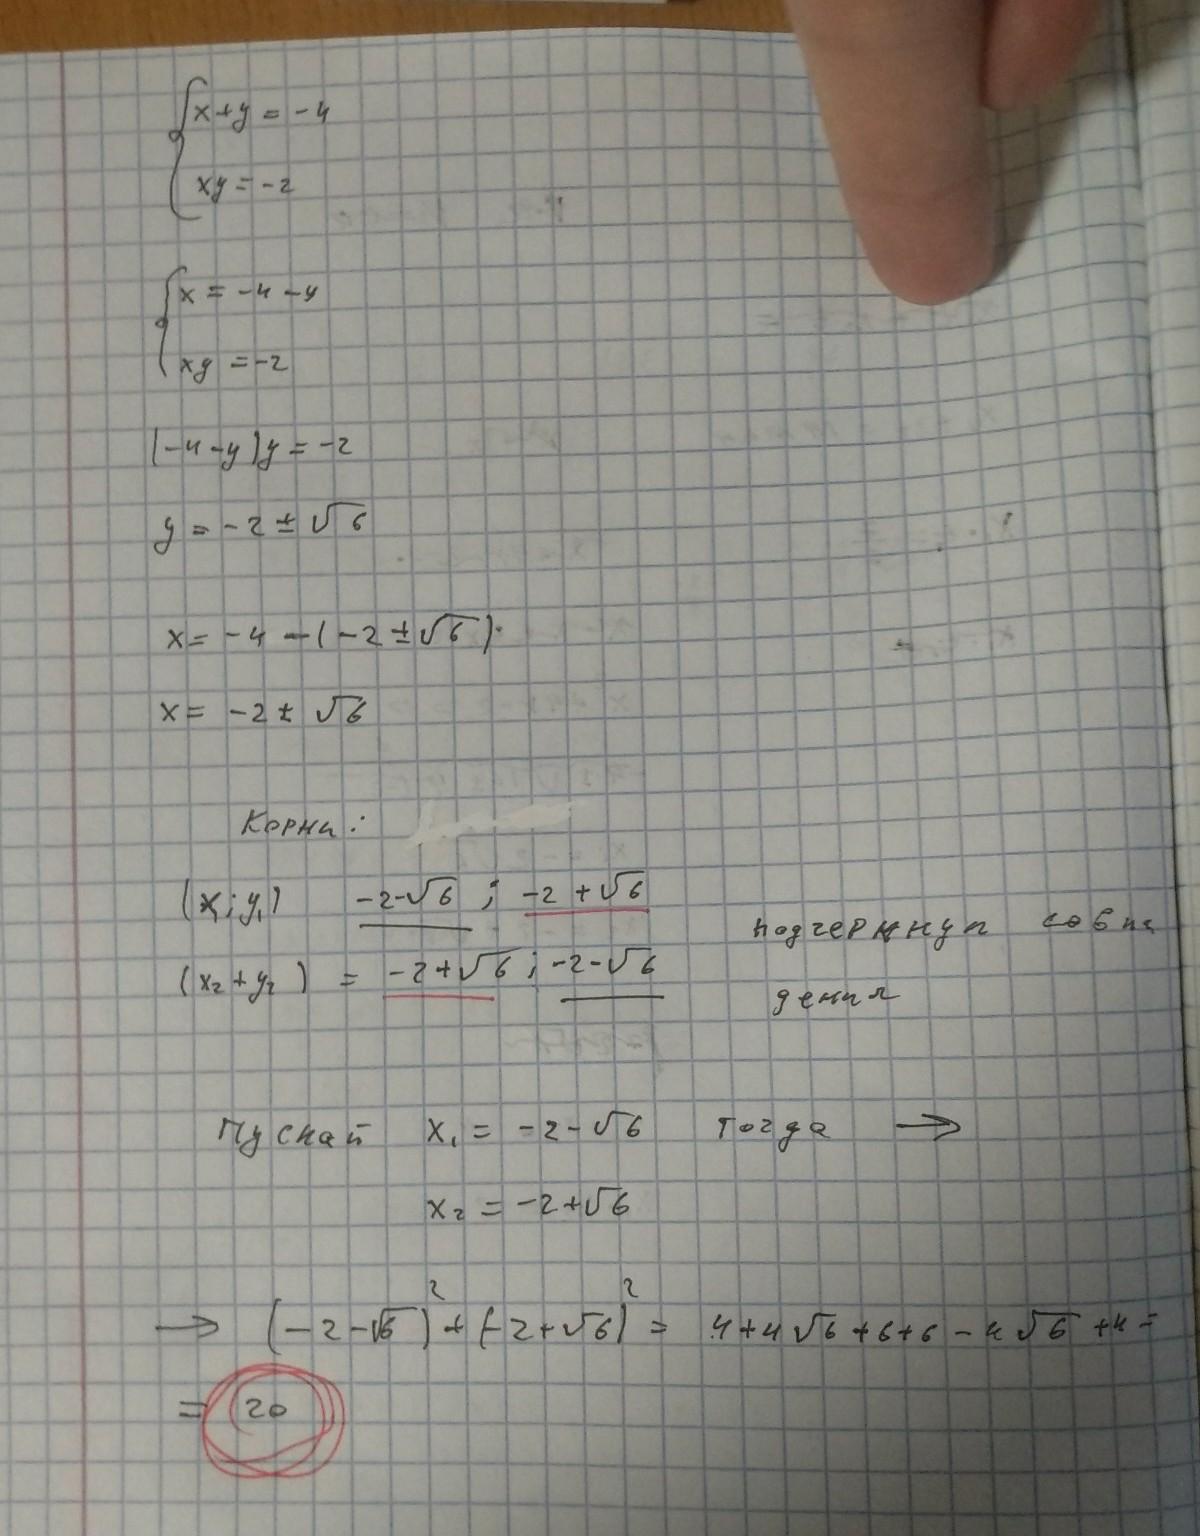 { x + y = -4
xy = -2
{ x = -4 - y
xy = -2
(-4-y)y = -2
y = -2 ± √6
x = -4 - (-2 ± √6)
x = -2 ± √6
Корни:
(x; y₁) -2-√6 ; -2+√6
(x₂ + y₂) = -2+√6 ; -2-√6
подчеркнул совпа
дения
Пускай x₁ = -2-√6 тогда →
x₂ = -2+√6
→ (-2-√6)² + (-2+√6)² = 4+4√6+6+6-4√6+4=
= 20